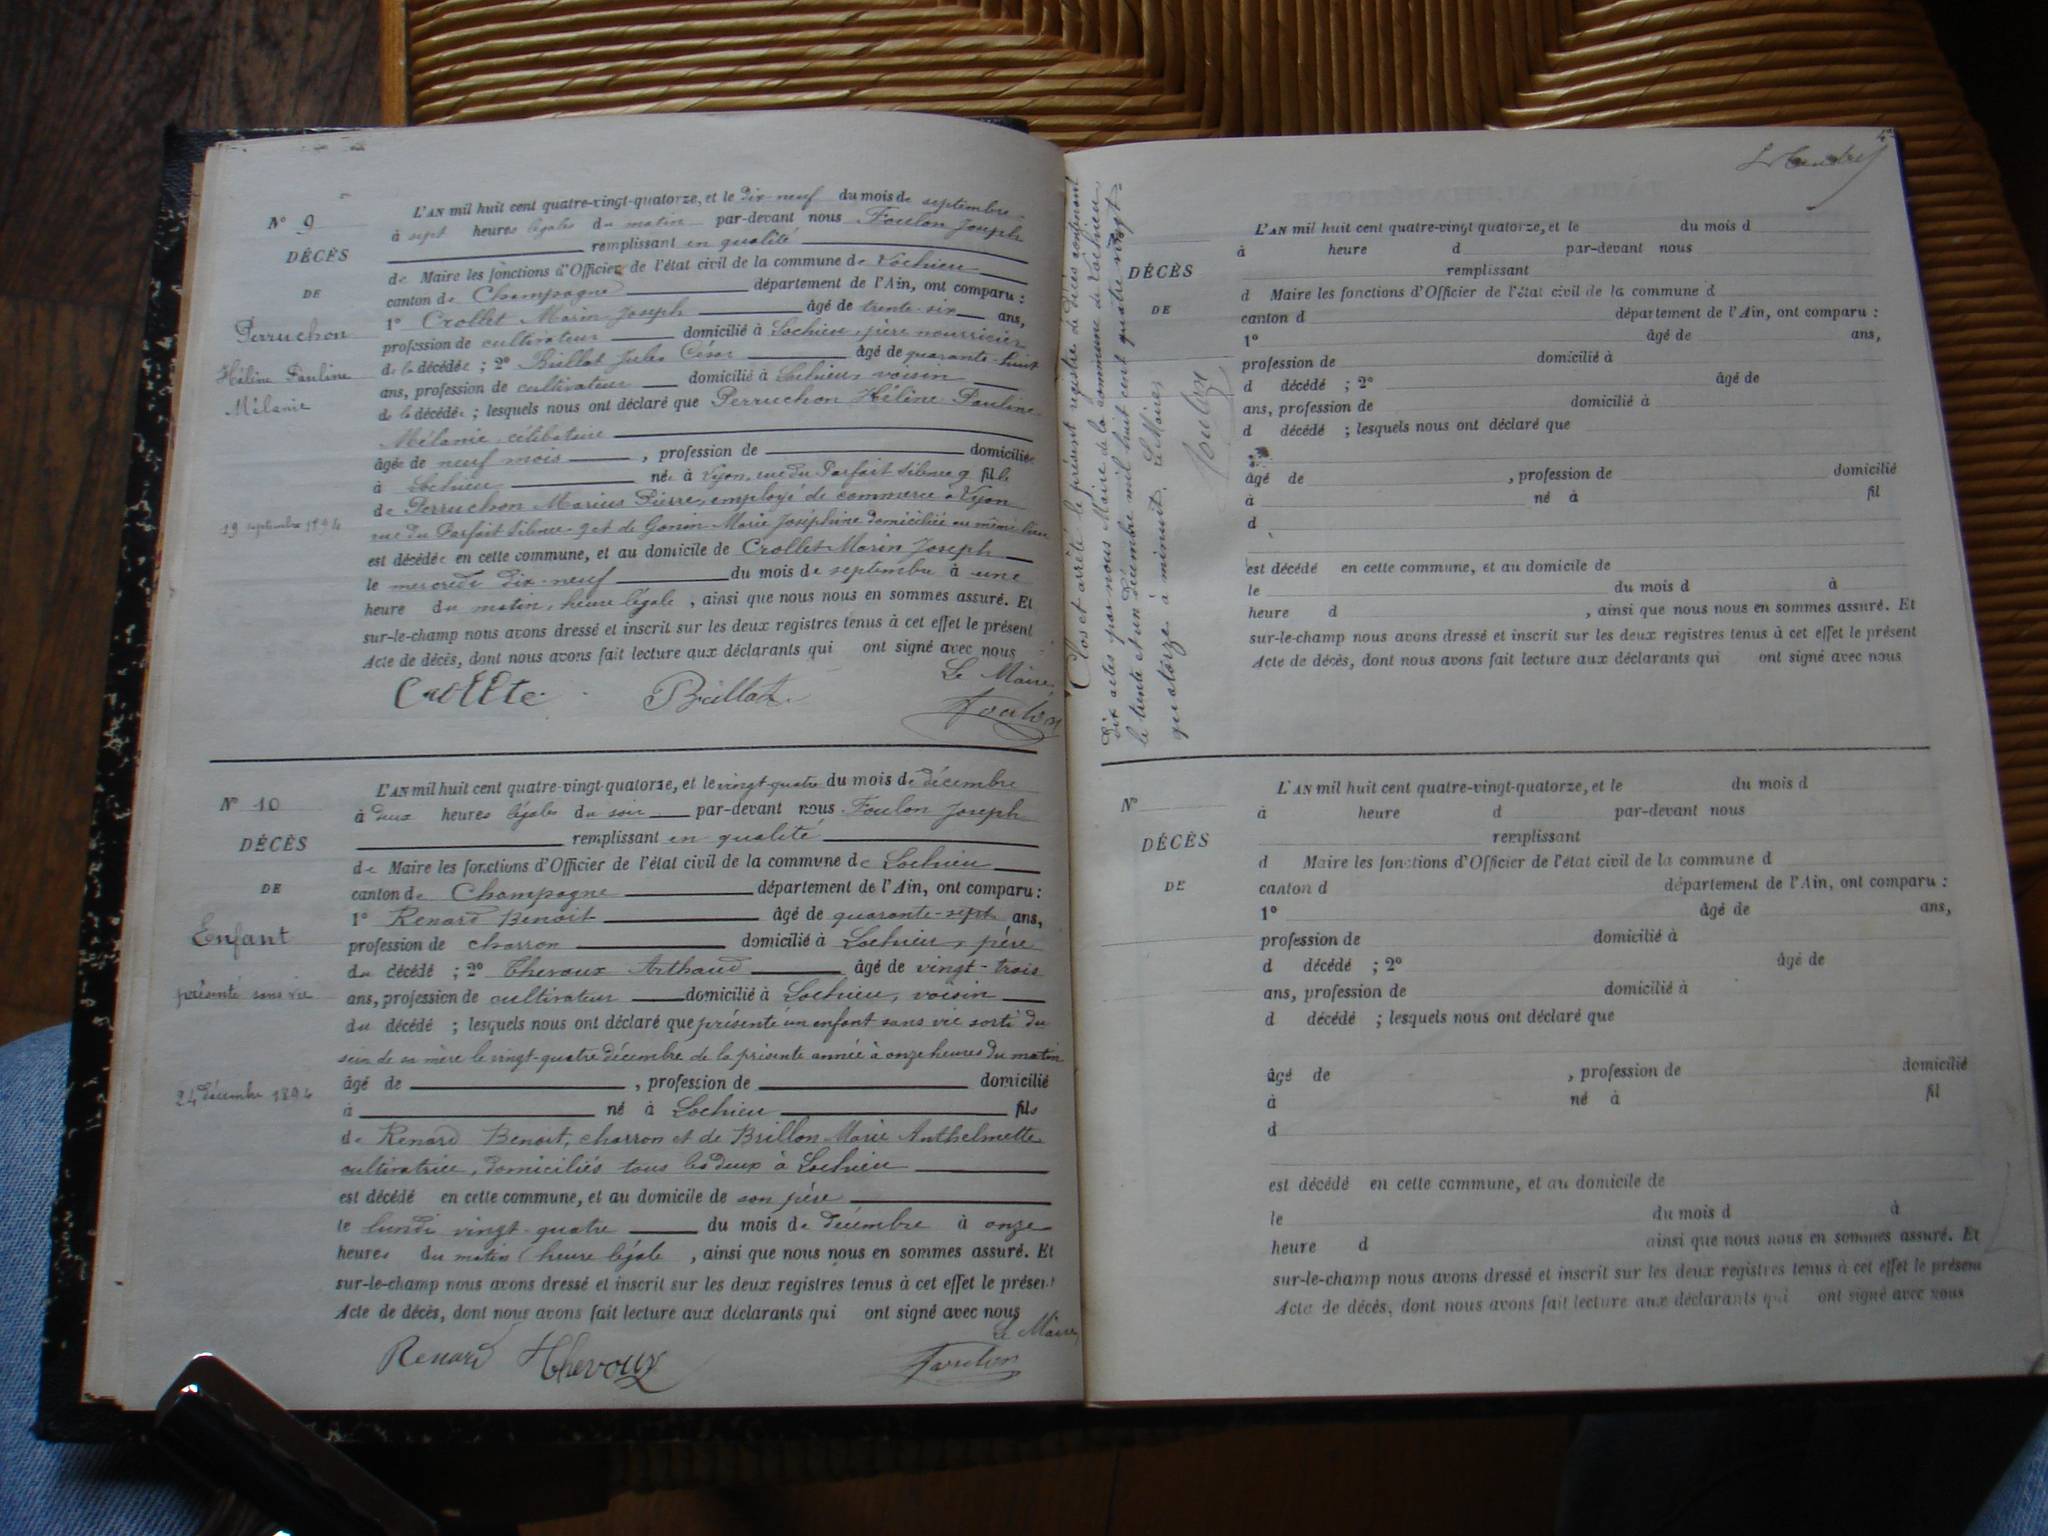 N° 9
DÉCÈS
DE
Perruchon
Hélène Pauline
Mélanie
19 septembre 1894
L'AN mil huit cent quatre-vingt-quatorze, et le dix-neuf du mois de septembre
à sept heures légales du matin par-devant nous Foulon Joseph
remplissant en qualité
de Maire les fonctions d'Officier de l'état civil de la commune de Lochieu
canton de Champagne département de l'Ain, ont comparu :
1° Crollet Marin Joseph âgé de trente-six ans,
profession de cultivateur domicilié à Lochieu, père nourricier
de la décédée ; 2° Buillat Jules César âgé de quarante-huit
ans, profession de cultivateur domicilié à Lochieu, voisin
de la décédée ; lesquels nous ont déclaré que Perruchon Hélène Pauline
Mélanie, célibataire
âgée de neuf mois , profession de domiciliée
à Lochieu née à Lyon, rue du Parfait Silence 9 fille
de Perruchon Marius Pierre, employé de commerce à Lyon
rue du Parfait Silence 9 et de Gonin Marie Joséphine domiciliée au même lieu
est décédée en cette commune, et au domicile de Crollet Marin Joseph
le mercredi dix-neuf du mois de septembre à une
heure du matin, heure légale , ainsi que nous nous en sommes assuré. Et
sur-le-champ nous avons dressé et inscrit sur les deux registres tenus à cet effet le présent
Acte de décès, dont nous avons fait lecture aux déclarants qui ont signé avec nous
Le Maire,
Buillat Foulon
N° 10
DÉCÈS
DE
Enfant
présenté sans vie
24 décembre 1894
L'AN mil huit cent quatre-vingt-quatorze, et le vingt-quatre du mois de décembre
à deux heures légales du soir par-devant nous Foulon Joseph
remplissant en qualité
de Maire les fonctions d'Officier de l'état civil de la commune de Lochieu
canton de Champagne département de l'Ain, ont comparu :
1° Renard Benoit âgé de quarante-sept ans,
profession de charron domicilié à Lochieu, père
du décédé ; 2° Thevoux Arthaud âgé de vingt-trois
ans, profession de cultivateur domicilié à Lochieu, voisin
du décédé ; lesquels nous ont déclaré que présenté un enfant sans vie sorti du
sein de sa mère le vingt-quatre décembre de la présente année à onze heures du matin
âgé de , profession de domicilié
à né à Lochieu fils
de Renard Benoit, charron et de Brillon Marie Anthelmette
cultivatrice, domiciliés tous les deux à Lochieu
est décédé en cette commune, et au domicile de son père
le lundi vingt-quatre du mois de décembre à onze
heures du matin (heure légale , ainsi que nous nous en sommes assuré. Et
sur-le-champ nous avons dressé et inscrit sur les deux registres tenus à cet effet le présent
Acte de décès, dont nous avons fait lecture aux déclarants qui ont signé avec nous
Le Maire,
Renard Thevoux Foulon
Clos et arrêté le présent registre de décès contenant
dix actes par nous Maire de la commune de Lochieu
le trente et un décembre mil huit cent quatre vingt-
quatorze à minuit. Le Maire,
Foulon
DÉCÈS
DE
L'AN mil huit cent quatre-vingt quatorze, et le du mois d
à heure d par-devant nous
remplissant
d Maire les fonctions d'Officier de l'état civil de la commune d
canton d département de l'Ain, ont comparu :
1° âgé de ans,
profession de domicilié à
d décédé ; 2° âgé de
ans, profession de domicilié à
d décédé ; lesquels nous ont déclaré que
âgé de , profession de domicilié
à né à fil
d
est décédé en cette commune, et au domicile de
le du mois d à
heure d , ainsi que nous nous en sommes assuré. Et
sur-le-champ nous avons dressé et inscrit sur les deux registres tenus à cet effet le présent
Acte de décès, dont nous avons fait lecture aux déclarants qui ont signé avec nous
N°
DÉCÈS
DE
L'AN mil huit cent quatre-vingt-quatorze, et le du mois d
à heure d par-devant nous
remplissant
d Maire les fonctions d'Officier de l'état civil de la commune d
canton d département de l'Ain, ont comparu :
1° âgé de ans,
profession de domicilié à
d décédé ; 2° âgé de
ans, profession de domicilié à
d décédé ; lesquels nous ont déclaré que
âgé de , profession de domicilié
à né à fil
d
est décédé en cette commune, et au domicile de
le du mois d à
heure d ainsi que nous nous en sommes assuré. Et
sur-le-champ nous avons dressé et inscrit sur les deux registres tenus à cet effet le présent
Acte de décès, dont nous avons fait lecture aux déclarants qui ont signé avec nous